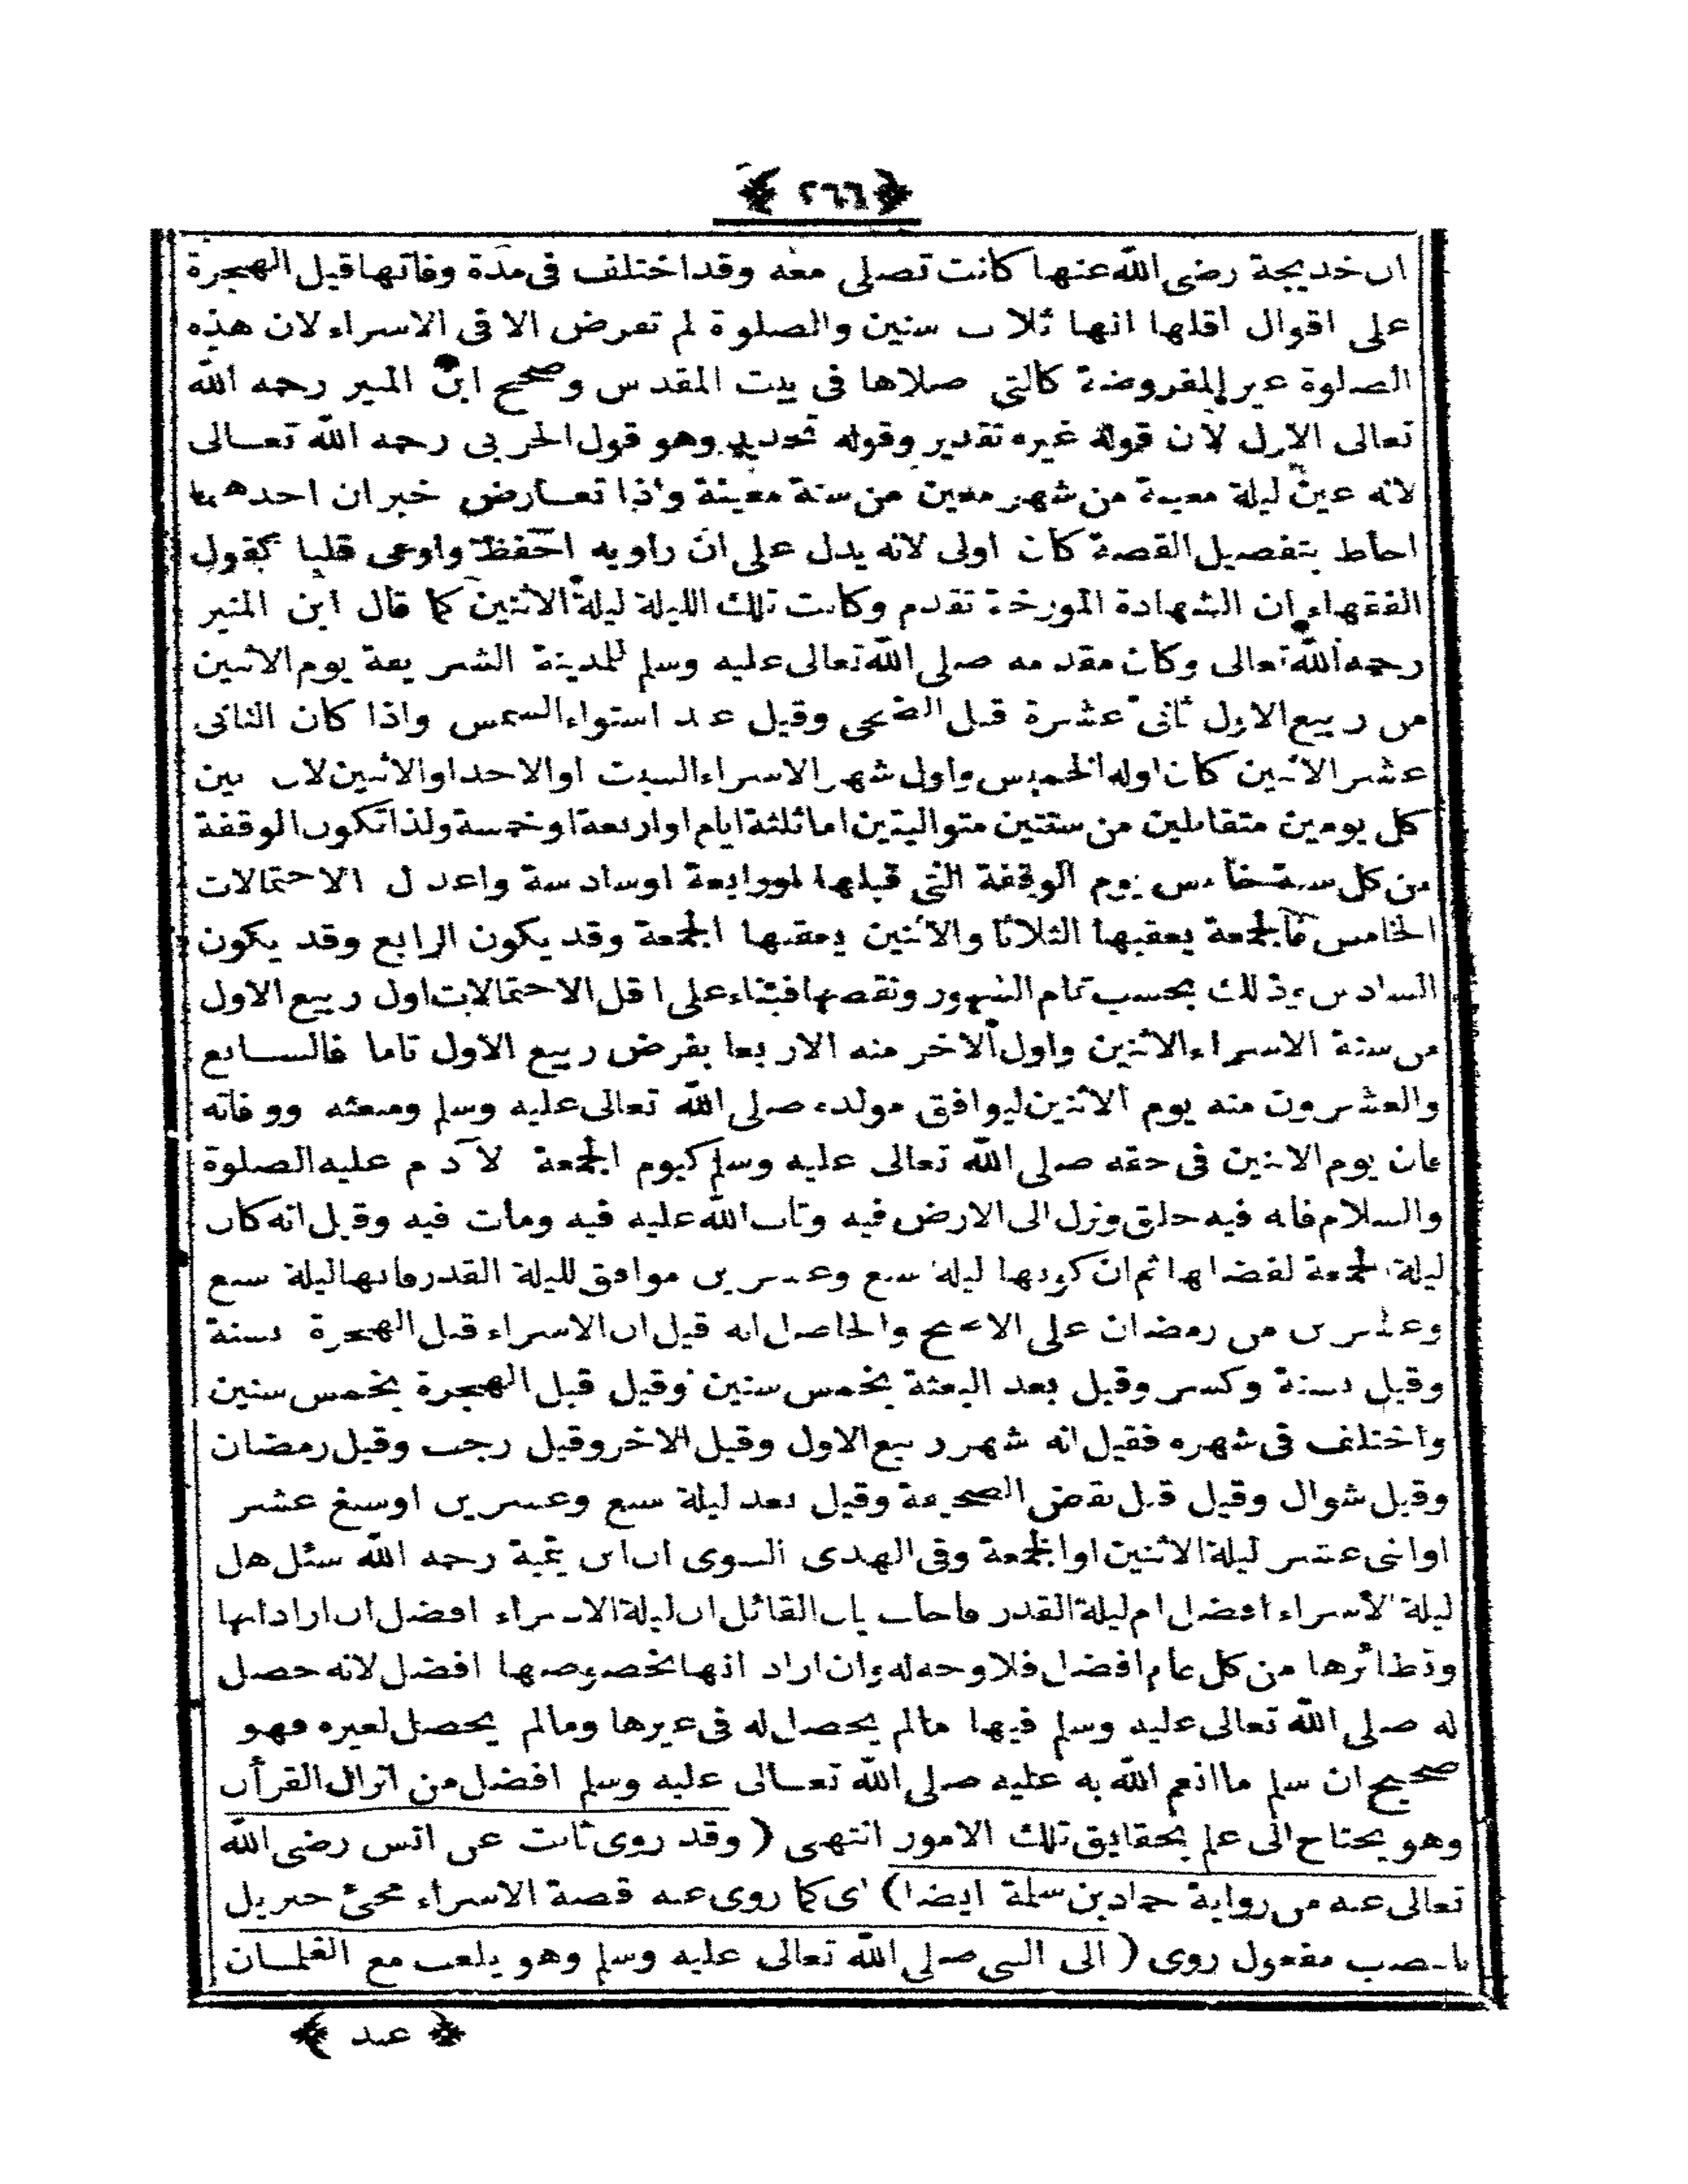 ﴿ ٢٦٦ ﴾
ان خديجة رضى الله عنها كانت تصلى معه وقد اختلف فى مدة وفاتها قبل الهجرة
على اقوال اقلها انها ثلاث سنين والصلوة لم تفرض الا فى الاسراء لان هذه
الصلوة غير المفروضة كالتى صلاها فى بيت المقدس وصحح ابن المنير رحمه الله
تعالى الاول لان قوله غيره تقدير وقوله تحديد وهو قول الحربى رحمه الله تعالى
لانه عين ليلة معينة من شهر معين من سنة معينة واذا تعارض خبران احدهما
احاط بتفصيل القصة كان اولى لانه يدل على ان راويه احفظ واوعى قلبا كقول
الفقهاء ان الشهادة المورخة تقدم وكانت تلك الليلة ليلة الاثنين كما قال ابن المنير
رحمه الله تعالى وكان مقدمه صلى الله تعالى عليه وسلم للمدينة الشريفة يوم الاثنين
من ربيع الاول ثانى عشرة قبل الضحى وقيل عند استواء الشمس واذا كان الثانى
عشر الاثنين كان اوله الخميس واول شهر الاسراء السبت او الاحد او الاثنين لان بين
كل يومين متقابلين من سنتين متواليتين اما ثلثة ايام او اربعة او خمسة ولذا تكون الوقفة
من كل سنة خامس يوم الوقفة التى قبلها اورابعة اوسادسة واعدل الاحتمالات
الخامس فالجمعة يعقبها الثلاثا والاثنين يعقبها الجمعة وقد يكون الرابع وقد يكون
السادس وذلك بحسب تمام الشهور ونقصها فبناء على اقل الاحتمالات اول ربيع الاول
من سنة الاسراء الاثنين واول الاخر منه الاربعا بفرض ربيع الاول تاما فالسابع
والعشرون منه يوم الاثنين ليوافق مولده صلى الله تعالى عليه وسلم ومبعثه ووفاته
فان يوم الاثنين فى حقه صلى الله تعالى عليه وسلم كيوم الجمعة لآدم عليه الصلوة
والسلام فانه فيه خلق ونزل الى الارض فيه وتاب الله عليه فيه ومات فيه وقيل انه كان
ليلة الجمعة لفضلها ثم ان كونها ليلة سبع وعشرين موافق لليلة القدر فانها ليلة سبع
وعشرين من رمضان على الاصح والحاصل انه قيل ان الاسراء قبل الهجرة بسنة
وقيل بسنة وكسر وقيل بعد البعثة بخمس سنين وقيل قبل الهجرة بخمس سنين
واختلف فى شهره فقيل انه شهر ربيع الاول وقيل الاخر وقيل رجب وقيل رمضان
وقيل شوال وقيل قبل نقض الصحيفة وقيل بعد ليلة سبع وعشرين اوسبع عشر
اواثنى عشر ليلة الاثنين اوالجمعة وفى الهدى السوى ان ابن تيمية رحمه الله سئل هل
ليلة الاسراء افضل ام ليلة القدر فاجاب بان القائل ان ليلة الاسراء افضل ان اراد انها
ونظائرها من كل عام افضل فلا وجه له وان اراد انها بخصوصها افضل لانه حصل
له صلى الله تعالى عليه وسلم فيها مالم يحصل له فى غيرها ومالم يحصل لغيره فهو
صحيح ان سلم ما انعم الله به عليه صلى الله تعالى عليه وسلم افضل من انزال القرأن
وهو يحتاج الى علم بحقايق تلك الامور انتهى ( وقد روى ثابت عن انس رضى الله
تعالى عنه من رواية حماد بن سلمة ايضا ) اى كما روى عنه قصة الاسراء مجئ جبريل
بالنصب مفعول روى ( الى النبى صلى الله تعالى عليه وسلم وهو يلعب مع الغلمان
﴿ عند ﴾